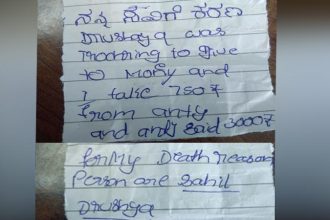 ನನ್ನ ಸಾವಿಗೆ ಕಾರಣ
Drushya was
to give
to Money and
I take 750₹
from anty
and anty said 3000₹
for My Death reason
Person are Sahil
Drushya